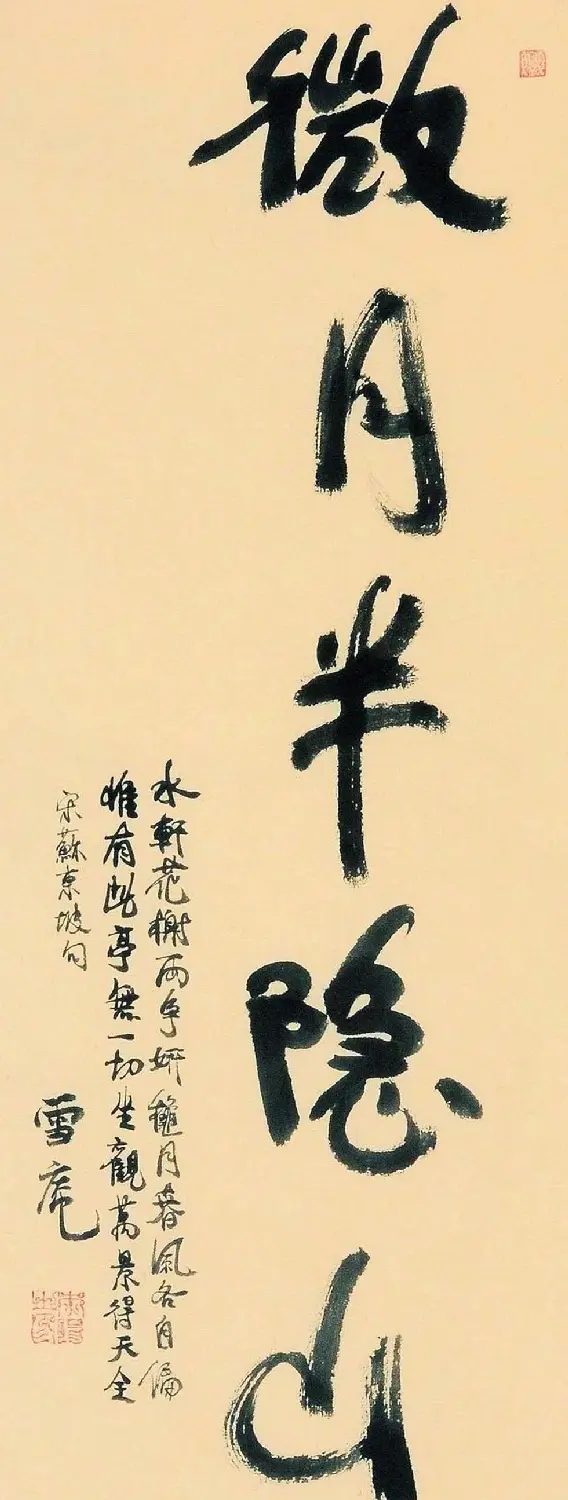 微月半隐山
水軒花榭兩争妍穐月春風各自偏
惟有此亭無一切坐觀萬景得天全
宋蘇東坡句
雪庵